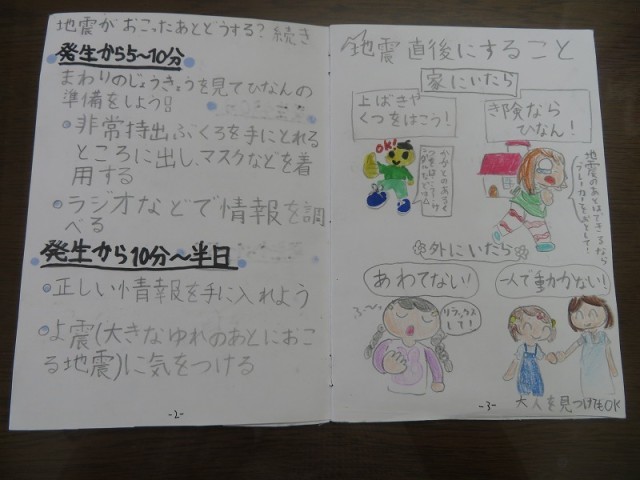 地震がおこったあとどうする? 続き
発生から5~10分
まわりのじょうきょうを見てひなんの
準備をしよう!!
非常持出ぶくろを手にとれる
ところに出し、マスクなどを着
用する
ラジオなどで情報を調
べる
発生から10分~半日
正しい情報を手に入れよう
よ震(大きなゆれのあとにおこ
る地震)に気をつける
-2-
地震直後にすること
家にいたら
上ばきや
くつをはこう!
OK!
き険なら
ひなん!
地震のあとはできるなら
ブレーカーをおとして!
外にいたら
あわてない!
ふ~
リラックス
して!
一人で動かない!
大人を見つけてもOK
-3-